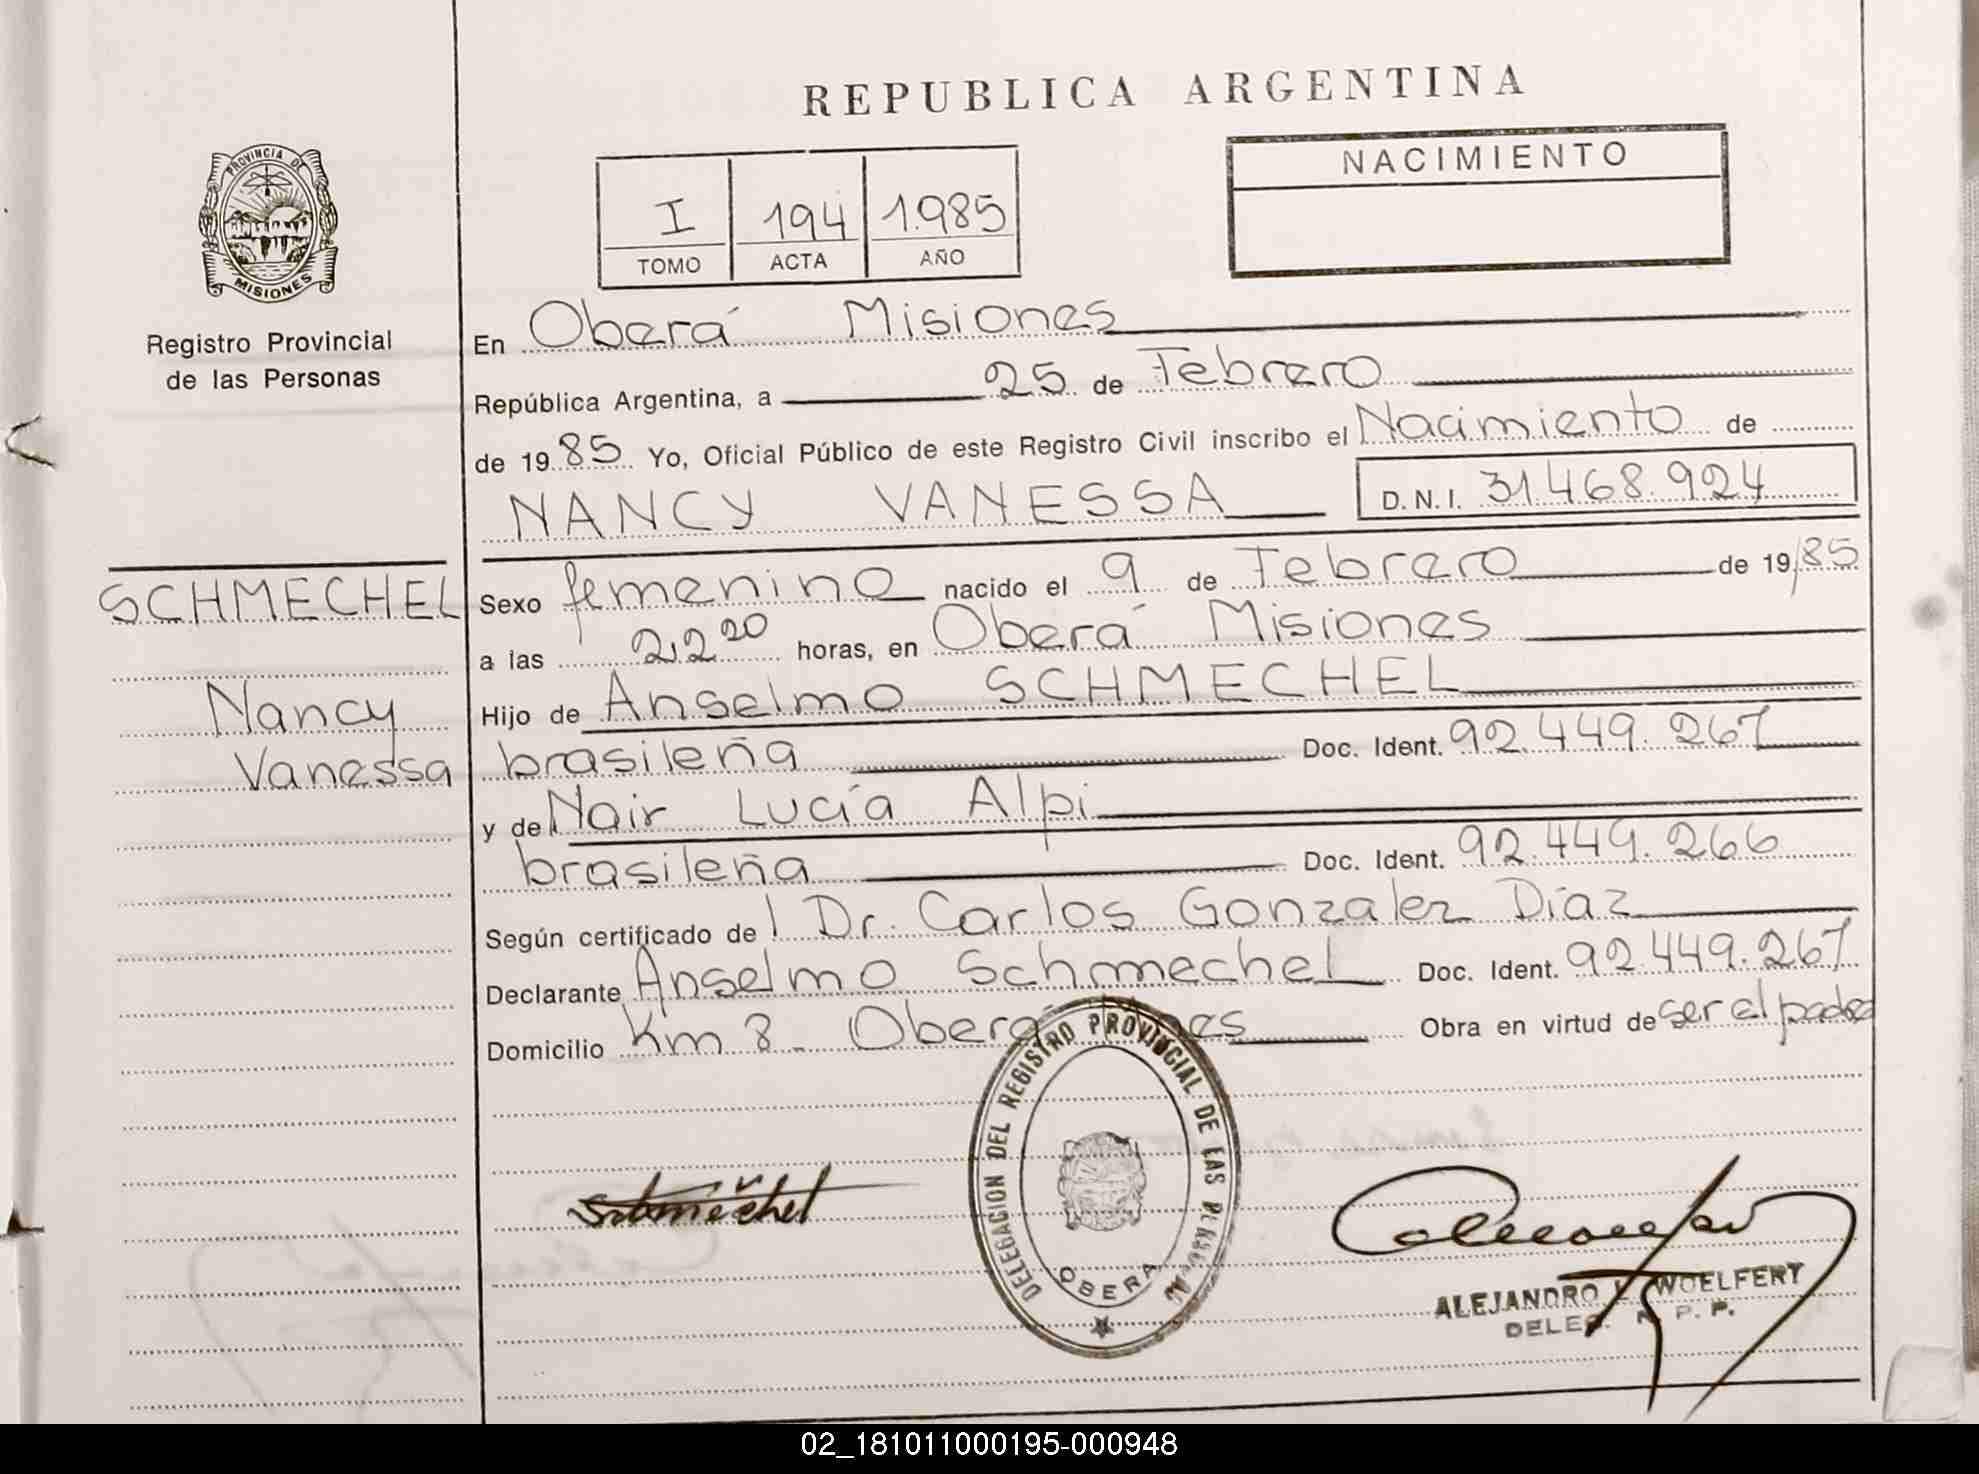 REPUBLICA ARGENTINA
PROVINCIA DE
MISIONES
Registro Provincial
de las Personas
I 194 1.985
TOMO ACTA AÑO
NACIMIENTO
En Oberá Misiones
República Argentina, a 25 de Febrero
de 1985 Yo, Oficial Público de este Registro Civil inscribo el Nacimiento de
NANCY VANESSA D.N.I. 31.468.924
SCHMECHEL
Nancy
Vanessa
Sexo femenino nacido el 9 de Febrero de 19/85
a las 22 20 horas, en Oberá Misiones
Hijo de Anselmo SCHMECHEL
brasileña Doc. Ident. 92.449.267
y de Nair Lucía Alpi
brasileña Doc. Ident. 92.449.266
Según certificado de Dr. Carlos Gonzalez Díaz
Declarante Anselmo Schmechel Doc. Ident. 92.449.267
Domicilio Km 8 - Oberá Obra en virtud de ser el padre
DELEGACION DEL REGISTRO PROVINCIAL DE LAS PERSONAS
OBERA
Schmechel
ALEJANDRO L. WOELFERT
DELEG. R. P. P.
02_181011000195-000948